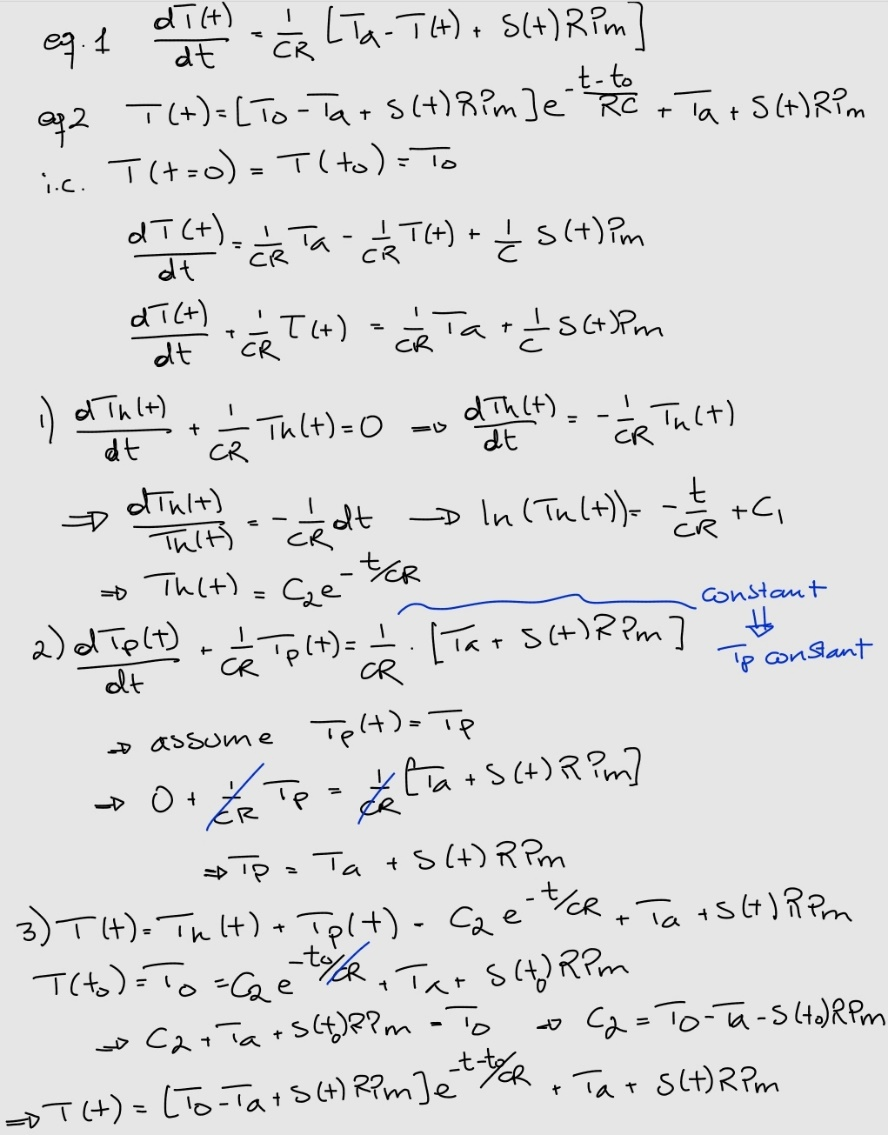 eq.1 dT(t)/dt = 1/CR [Ta - T(t) + S(t)RPm]
eq2 T(t) = [To - Ta + S(t)RPm]e^-(t-to)/RC + Ta + S(t)RPm
i.c. T(t=0) = T(to) = To
dT(t)/dt = 1/CR Ta - 1/CR T(t) + 1/C S(t)Pm
dT(t)/dt + 1/CR T(t) = 1/CR Ta + 1/C S(t)Pm
1) dTh(t)/dt + 1/CR Th(t) = 0 ⇒ dTh(t)/dt = - 1/CR Th(t)
⇒ dTh(t)/Th(t) = - 1/CR dt → ln(Th(t)) = - t/CR + C1
⇒ Th(t) = C2e^-t/CR
constant
2) dTp(t)/dt + 1/CR Tp(t) = 1/CR · [Ta + S(t)RPm] ⇓ Tp constant
⇒ assume Tp(t) = Tp
⇒ 0 + 1/CR Tp = 1/CR [Ta + S(t)RPm]
⇒ Tp = Ta + S(t)RPm
3) T(t) = Th(t) + Tp(t) = C2 e^-t/CR + Ta + S(t)RPm
T(to) = To = C2 e^-to/CR + Ta + S(to)RPm
⇒ C2 + Ta + S(to)RPm = To ⇒ C2 = To - Ta - S(to)RPm
⇒ T(t) = [To - Ta + S(t)RPm]e^-t-to/CR + Ta + S(t)RPm